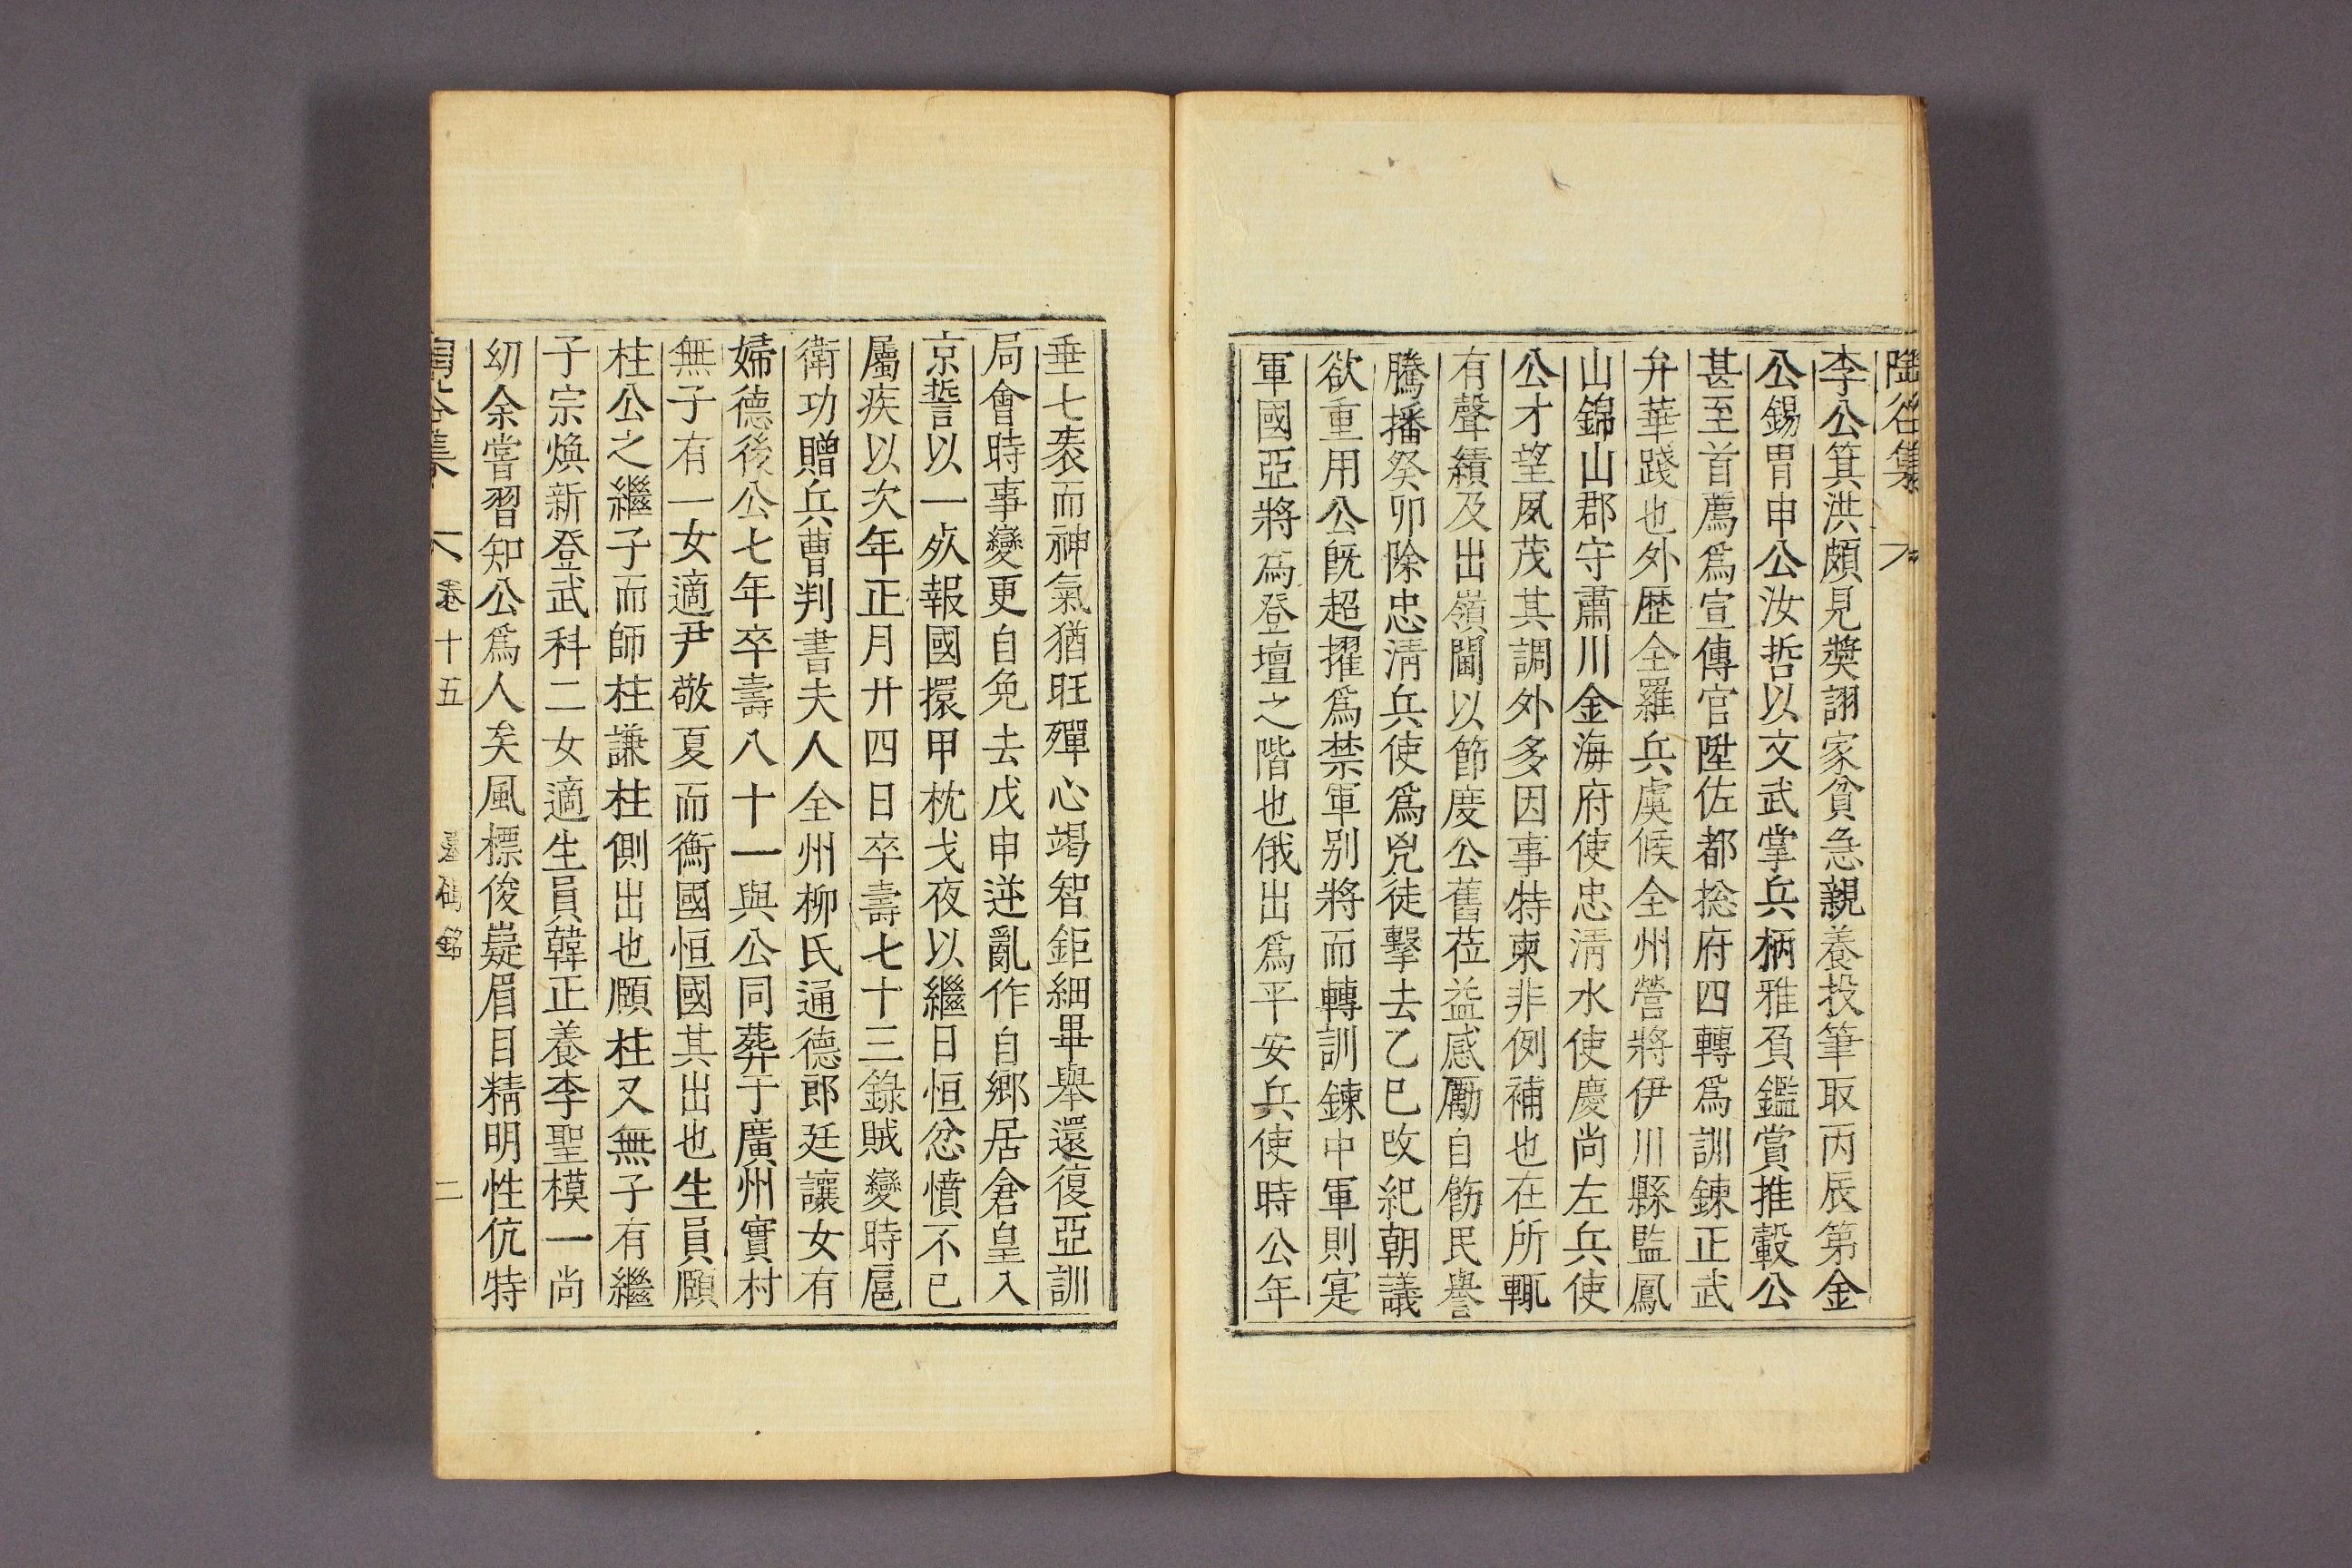 陶谷集
李公箕洪頗見奬詡家貧急親養投筆取丙辰第金
公錫胄申公汝哲以文武掌兵柄雅負鑑賞推轂公
甚至首薦爲宣傳官陞佐都捴府四轉爲訓鍊正武
弁華踐也外歷全羅兵虞候全州營將伊川縣監鳳
山錦山郡守肅川金海府使忠淸水使慶尚左兵使
公才望夙茂其調外多因事特柬非例補也在所輒
有聲績及出嶺閫以節度公舊莅益感勵自飭民譽
騰播癸卯除忠淸兵使爲兇徒擊去乙巳改紀朝議
欲重用公旣超擢爲禁軍別將而轉訓鍊中軍則寔
軍國亞將爲登壇之階也俄出爲平安兵使時公年
垂七袠而神氣猶旺殫心竭智鉅細畢舉還復亞訓
局會時事變更自免去戊申逆亂作自鄕居倉皇入
京誓以一死報國擐甲枕戈夜以繼日恒忿憤不已
屬疾以次年正月廿四日卒壽七十三錄賊變時扈
衛功贈兵曹判書夫人全州柳氏通德郞廷讓女有
婦德後公七年卒壽八十一與公同葬于廣州實村
無子有一女適尹敬夏而衡國恒國其出也生員頥
柱公之繼子而師柱謙柱側出也頥柱又無子有繼
子宗煥新登武科二女適生員韓正養李聖模一尚
幼余嘗習知公爲人矣風標俊嶷眉目精明性伉特
陶谷集 卷十五 墓碣銘 二